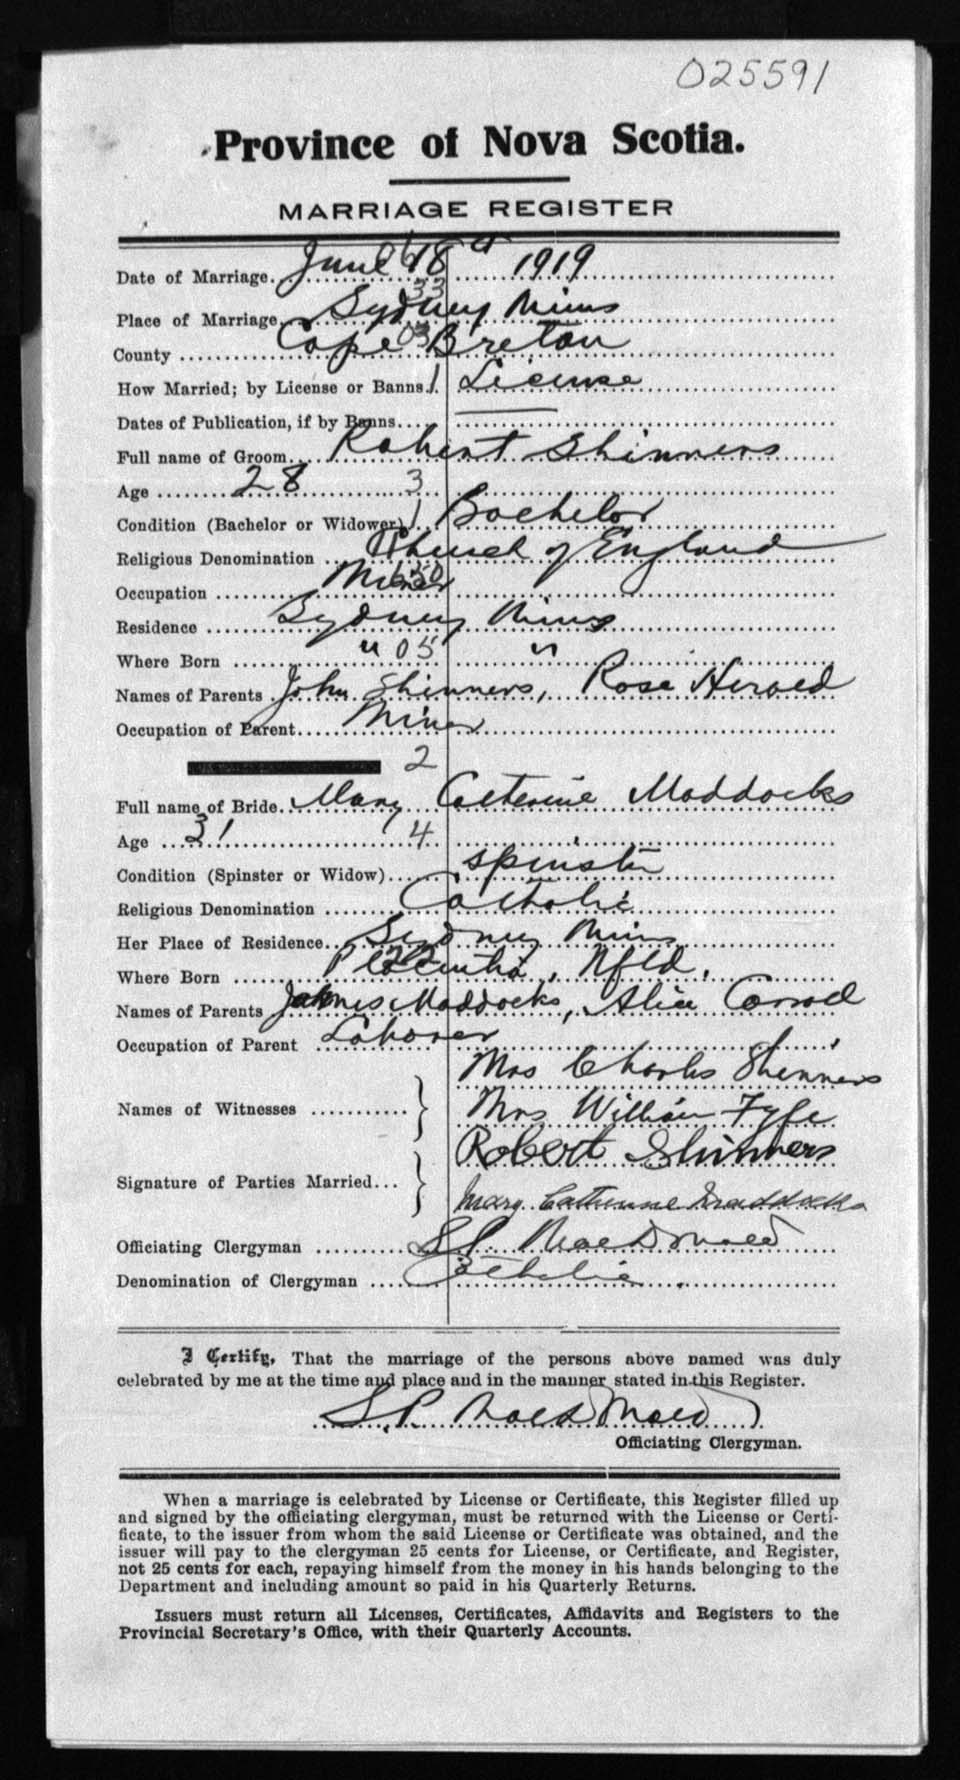 025591
Province of Nova Scotia.
MARRIAGE REGISTER
Date of Marriage. June 06 18th 1919
33
Place of Marriage Sydney Mines
County Cape 03 Breton
How Married; by License or Banns. 1 License
Dates of Publication, if by Banns. ———
Full name of Groom Robert Shinners
Age 28 3
Condition (Bachelor or Widower) 1 Bachelor
Religious Denomination Church of England
Occupation Miner
Residence Sydney Mines
Where Born " 05 "
Names of Parents John Shinners, Rose Herold
Occupation of Parent Miner
2
Full name of Bride Mary Catherine Maddocks
Age 31 4
Condition (Spinster or Widow) Spinster
Religious Denomination Catholic
Her Place of Residence Sydney Mines
Where Born Placentia, Nfld.
Names of Parents James Maddocks, Alice Conrod
Occupation of Parent Laborer
Mrs Charles Shinners
Names of Witnesses
Mrs William Fyfe
Robert Shinners
Signature of Parties Married
Mary Catherine Maddocks
Officiating Clergyman S.P. MacDonald
Denomination of Clergyman Catholic
I Certify, That the marriage of the persons above named was duly
celebrated by me at the time and place and in the manner stated in this Register.
S.P. MacDonald
Officiating Clergyman.
When a marriage is celebrated by License or Certificate, this Register filled up
and signed by the officiating clergyman, must be returned with the License or Certi-
ficate, to the issuer from whom the said License or Certificate was obtained, and the
issuer will pay to the clergyman 25 cents for License, or Certificate, and Register,
not 25 cents for each, repaying himself from the money in his hands belonging to the
Department and including amount so paid in his Quarterly Returns.
Issuers must return all Licenses, Certificates, Affidavits and Registers to the
Provincial Secretary's Office, with their Quarterly Accounts.